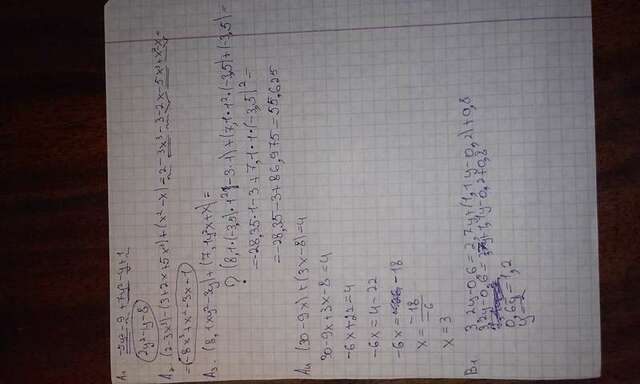 A1 -5y² - 9 + 7y² - y + 1
2y² - y - 8
A2 (2-3x³)-(3+2x+5x³)+(x²-x)=2-3x³-3-2x-5x³+x²-x=
=-8x³+x²-3x-1
A3. (8,1xy²-3y)+(7,1y²x+x)=
(8,1·(-3,5)·1²-3·1)+(7,1·1²·(-3,5)+(-3,5)=
=-28,35·1-3+7,1·1·(-3,5)²=
=-28,35-3+86,975=55,625
A4 (30-9x)+(3x-8)=4
30-9x+3x-8=4
-6x+22=4
-6x=4-22
-6x=-18
x=-18/-6
x=3
B1 3,2y-0,6=2,7y+(1,1y-0,2)+0,8
3,2y-0,6=2,7y+1,1y-0,2+0,8
0,6y=1,2
y=2